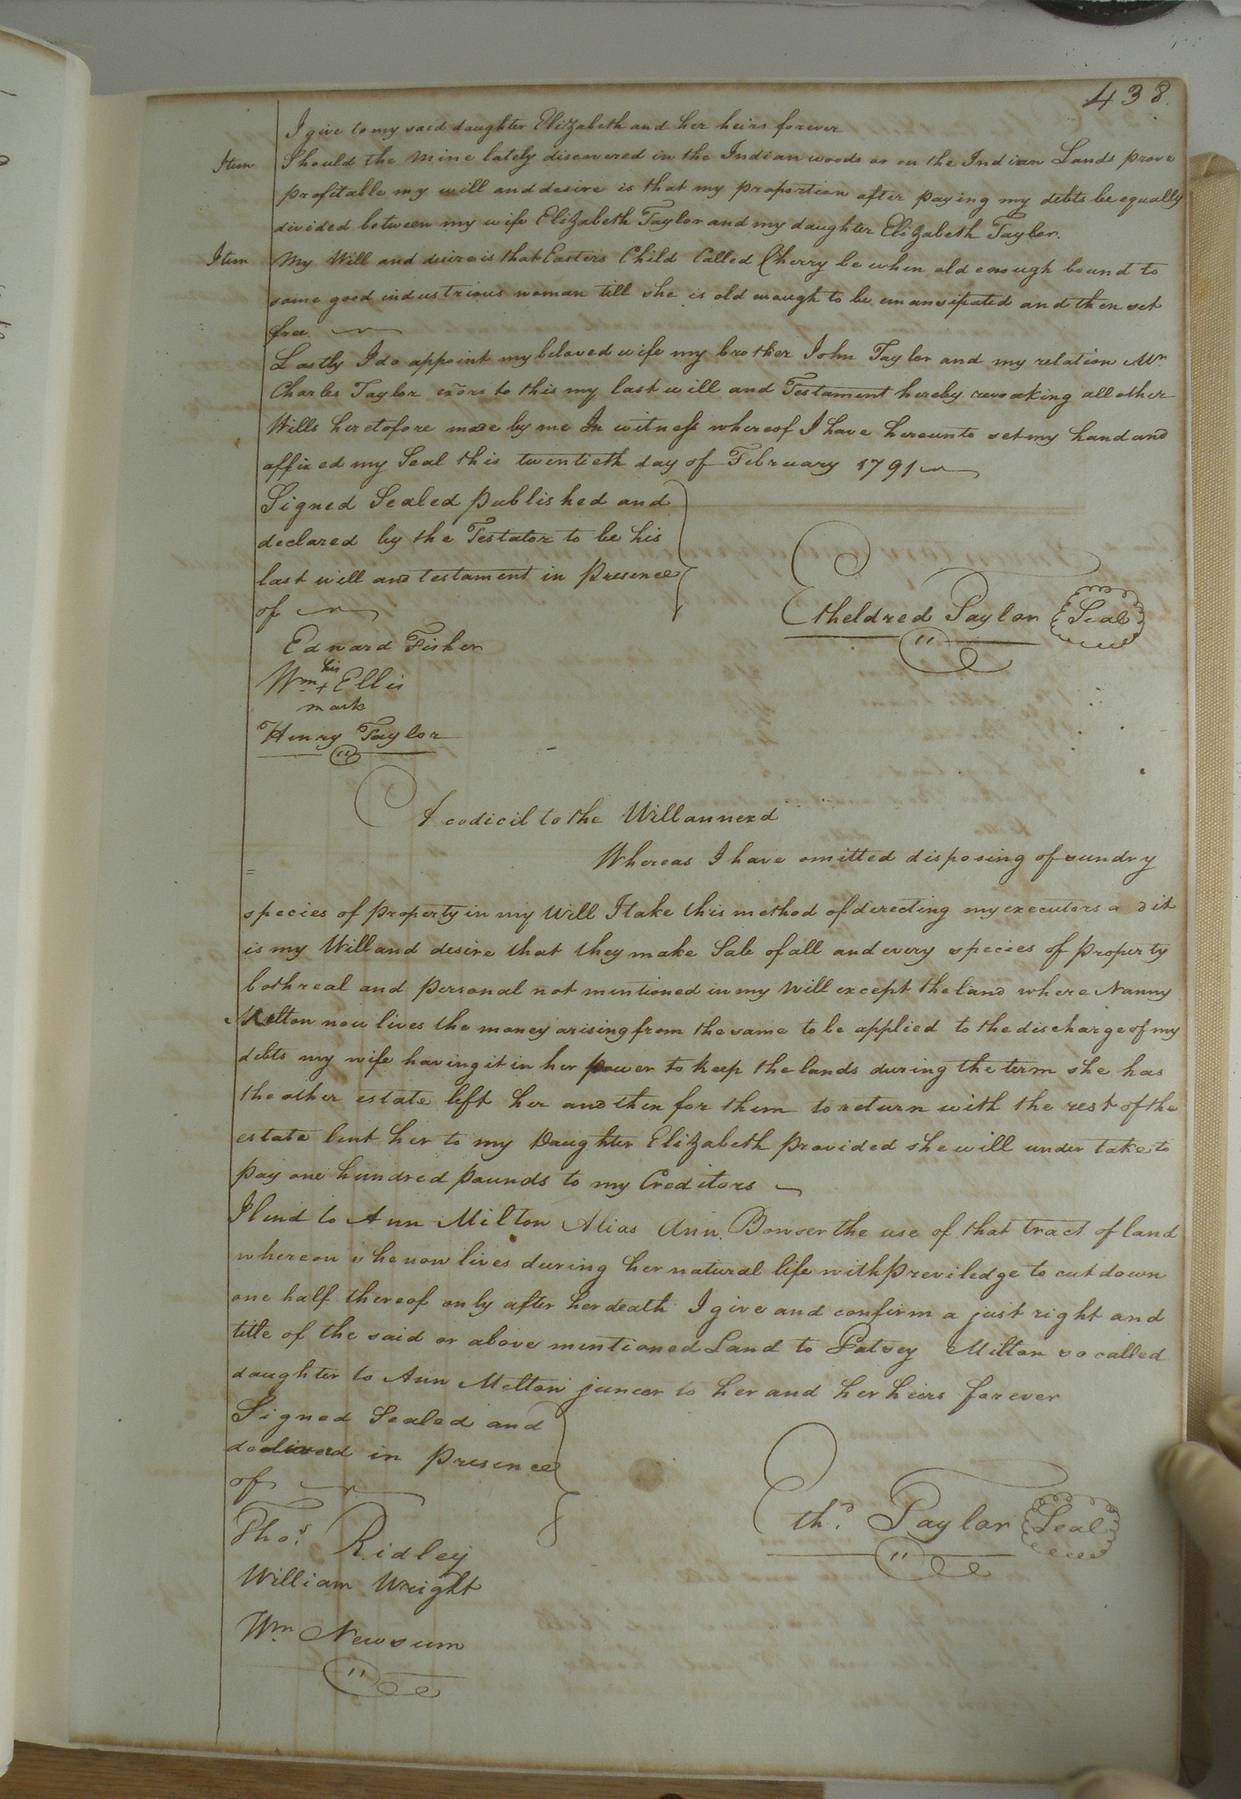 438.
I give to my said daughter Elizabeth and her heirs forever
Item Should the mine lately discovered in the Indian woods or on the Indian Lands prove
profitable my will and desire is that my proportion after paying my debts be equally
divided between my wife Elizabeth Taylor and my daughter Elizabeth Taylor.
Item My Will and desire is that Easters Child Called Cherry be when old enough bound to
some good industrious woman till she is old enough to be emancipated and then set
free
Lastly I do appoint my beloved wife my brother John Taylor and my relation Mr.
Charles Taylor exors to this my last will and Testament hereby revoaking all other
Wills heretofore made by me In witness whereof I have hereunto set my hand and
affixed my Seal this twentieth day of February 1791
Signed Sealed published and
declared by the Testator to be his
last will and testament in presence
of
Etheldred Taylor Seal
Edward Fisher
Wm. his + Ellis
mark
Henry Taylor
A codicil to the Will annexd
Whereas I have omitted disposing of sundry
species of property in my Will I take this method of directing my executors a d it
is my Will and desire that they make Sale of all and every species of property
both real and personal not mentioned in my Will except the land where Nanny
Melton now lives the money arising from the same to be applied to the discharge of my
debts my wife having it in her power to keep the lands during the term she has
the other estate left her and then for them to return with the rest of the
estate lent her to my Daughter Elizabeth provided she will under take to
pay one hundred pounds to my Creditors
I lend to Ann Milton Alias Ann Bowser the use of that tract of land
whereon she now lives during her natural life with previledge to cut down
one half thereof only after her death I give and confirm a just right and
title of the said or above mentioned Land to Patsey Milton so called
daughter to Ann Melton juner to her and her heirs forever
Signed Sealed and
delivered in presence
of
Eth.d Taylor Seal
Thos. Ridley
William Wright
Wm. Newsum